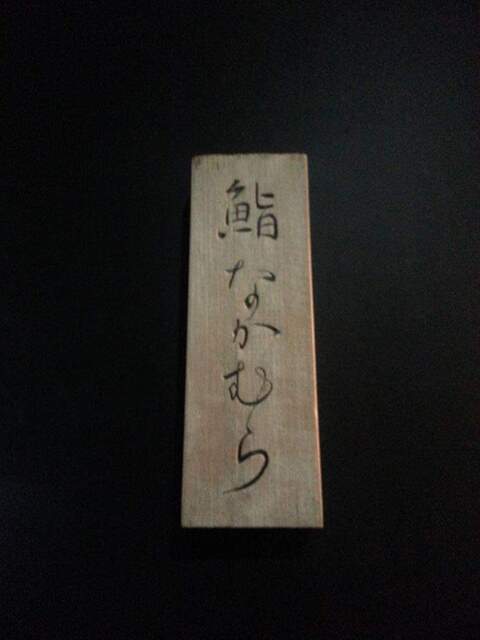 鮨なかむら